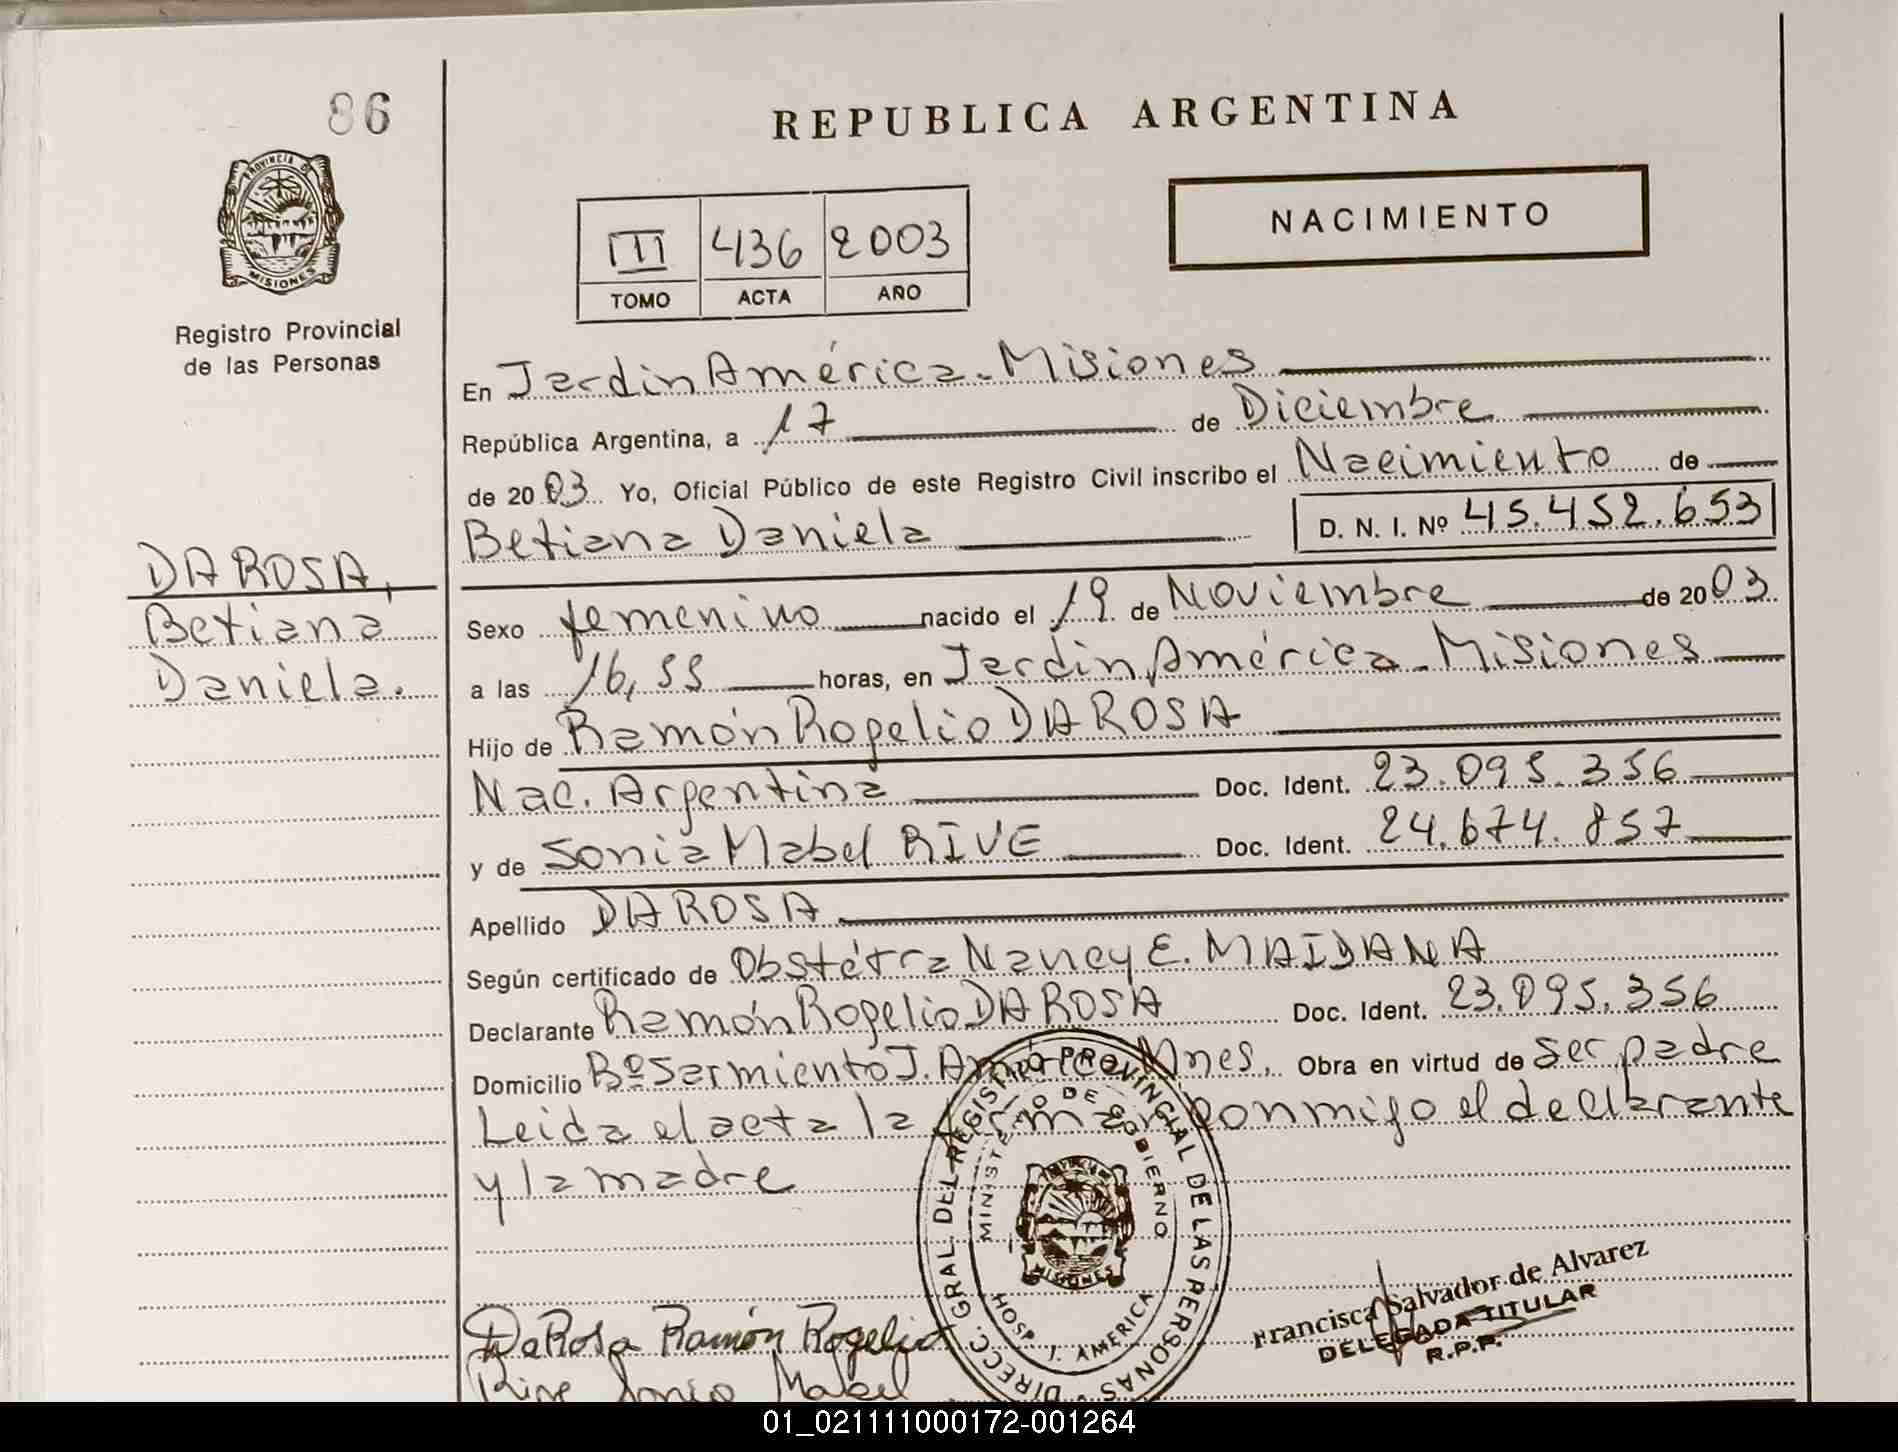 86
REPUBLICA ARGENTINA
PROVINCIA DE
MISIONES
Registro Provincial
de las Personas
III 436 2003
TOMO ACTA AÑO
NACIMIENTO
En Jardin América - Misiones
República Argentina, a 17 de Diciembre
de 20 03 Yo, Oficial Público de este Registro Civil inscribo el Nacimiento de
Betiana Daniela D. N. I. Nº 45.452.653
DA ROSA,
Betiana
Daniela.
Sexo femenino nacido el 19 de Noviembre de 20 03
a las 16,55 horas, en Jardin América - Misiones
Hijo de Ramón Rogelio DA ROSA
Nac. Argentina Doc. Ident. 23.095.356
y de Sonia Mabel RIVE Doc. Ident. 24.674.857
Apellido DA ROSA
Según certificado de Obstétra Nancy E. MAIDANA
Declarante Ramón Rogelio DA ROSA Doc. Ident. 23.095.356
Domicilio Bº Sarmiento J. América Mnes. Obra en virtud de ser padre
Leida el acta la firman conmigo el declarante
y la madre
DIRECC. GRAL. DEL REGISTRO PROVINCIAL DE LAS PERSONAS
MINISTERIO DE GOBIERNO
MISIONES
HOSP. J. AMERICA
Francisca Salvador de Alvarez
DELEGADA TITULAR
R.P.P.
Da Rosa Ramón Rogelio
Rive Sonia Mabel
01_021111000172-001264